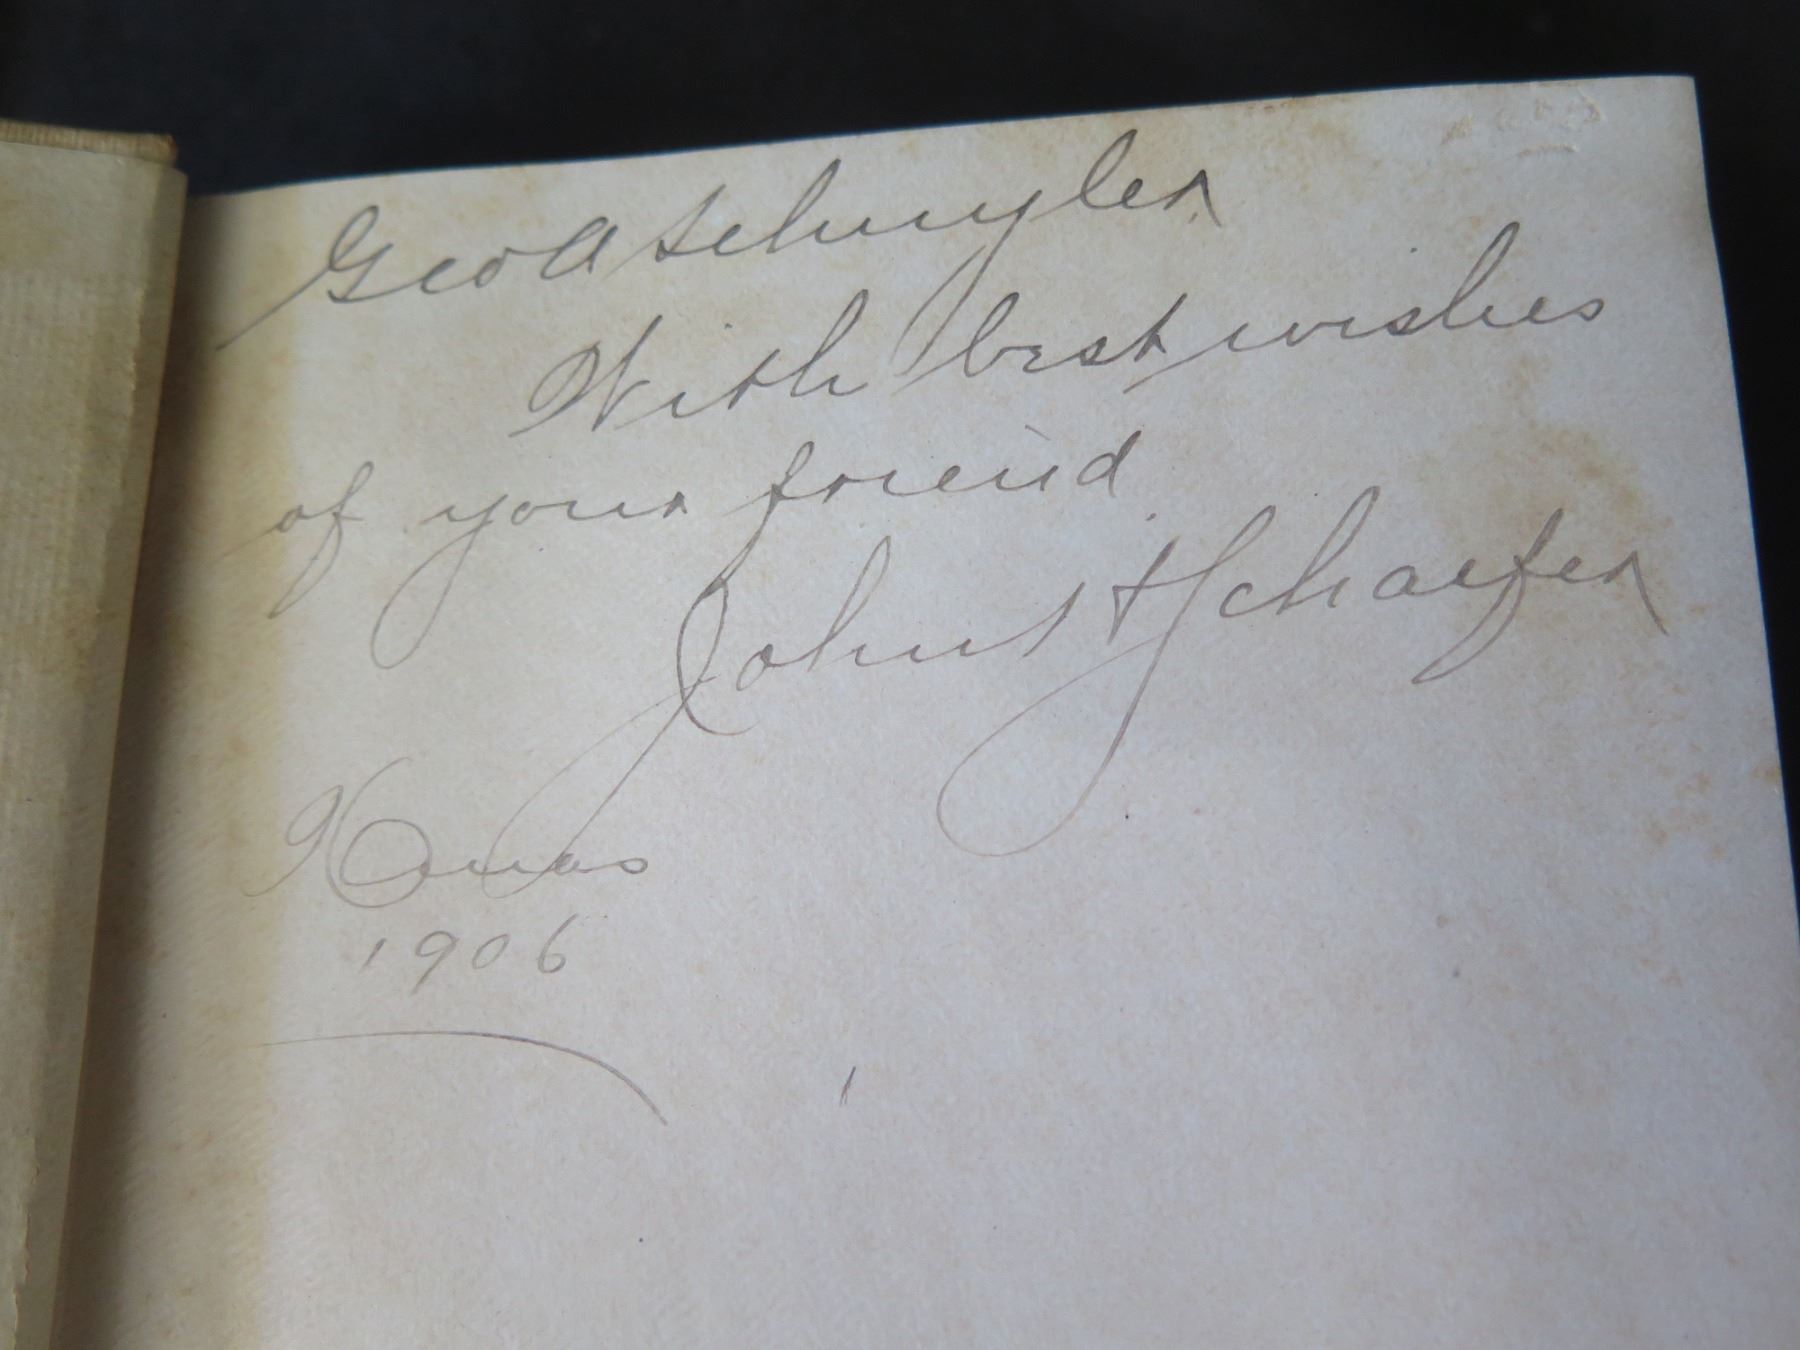 Geo A Schuyler
With best wishes
of your friend
John H Schaefer
Xmas
1906